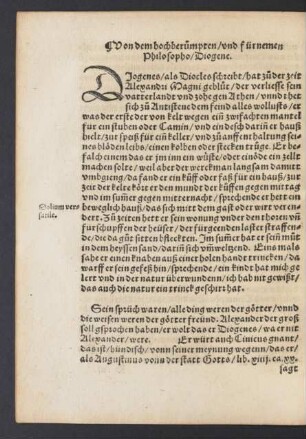 Von dem hochberümpten/vnd fürnemen
Philosopho/Diogene.
DJogenes/als Diocles schreibt/hat zů der zeit
Alexandri Magni geblüt/der verliesse sein
vatterlandt vnd zohe gen Athen/vnnd thet
sich zů Antistene dem feind alles wollusts/er
was der erste der von kelt wegen ein zwifachten mantel
für ein stuben oder Camin/vnd ein desch darin er hauß
hielt/zur spyß für ein keller/vnd zů auffenthaltung sei-
nes blöden leibs/einen kolben oder stecken trüge. Er be-
falch einem das er jm inn ein wüste/oder einöde ein zell
machen solte/weil aber der werckman langsam damit
vmbgieng/da fand er ein küff oder faß für ein hauß/zur
zeit der kelte kört er den mundt der küffen gegen mittag
vnd im summer gegen mitternacht/sprechende er hett ein
Dolium ver-
satile.
beweglich hauß/das sich mitt dem gast oder wirt ver en-
dert. Zů zeiten hett er sein wonung vnder den thoren vñ
fürschupffen der heüser/der fürgeenden laster straffen-
de/die da gůt sitten bsteckten. Im summer hat er sein müt
in dem heyssen sand/darin sich vmbweltzend. Eins mals
sahe er einen knaben auß einer holen handt trincken/da
warff er sein gefeß hin/sprechende/ein kindt hat mich ge
lert vnd in der natur überwundenn/ich hab nit gewißt/
das auch die natur ein trinck geschirr hat.
Sein sprüch waren/alle ding weren der götter/vnnd
die weisen weren der götter freünd. Alexander der groß
soll gsprochen haben/er wolt das er Diogenes/wa er nit
Alexander/were. Er würt auch Cinicus gnant/
das ist/hündisch/vonn seiner meynung wegenn/das er/
als Augustinus vonn der statt Gotts/lib. xiiij. ca. xx.
sagt